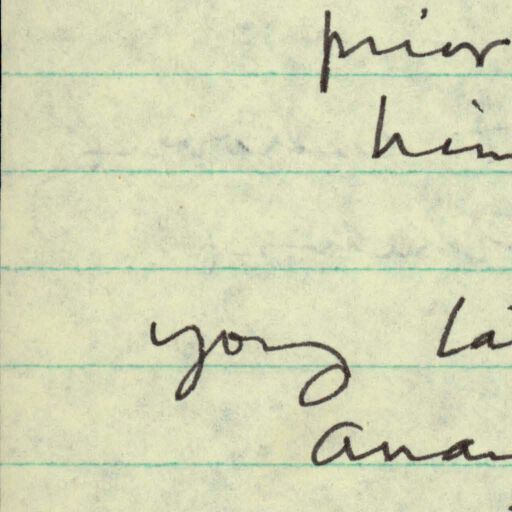 prior
him
yong la
anan